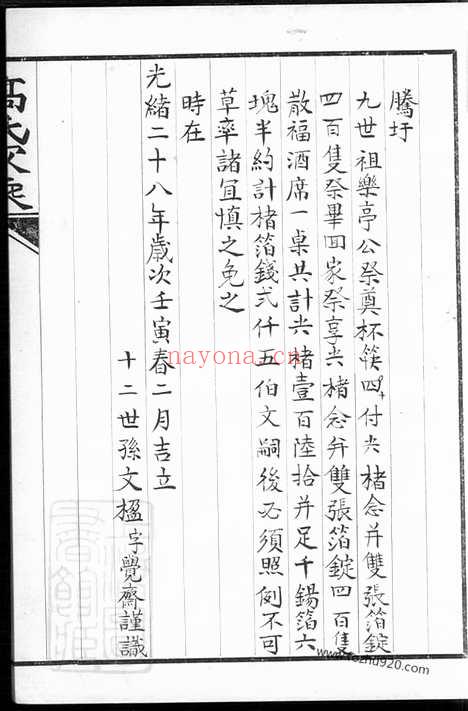 騰圩
九世祖樂亭公祭奠杯筷四十付尖楮念并雙張箔錠
四百隻祭畢回家祭享尖楮念并雙張箔錠四百隻
散福酒席一桌共計尖楮壹百陸拾并足千錫箔六
塊半約計楮箔錢弍仟五伯文嗣後必須照例不可
草率諸宜慎之免之
時在
光緒二十八年歲次壬寅春二月吉立
十二世孫文楹字覺齋謹識
nayona.cn
fozhu920.com